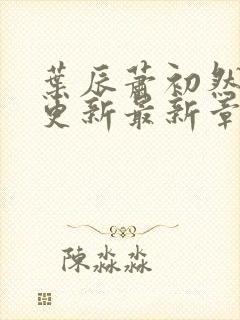 葉辰蕭初然
更新最新章
陳淼淼